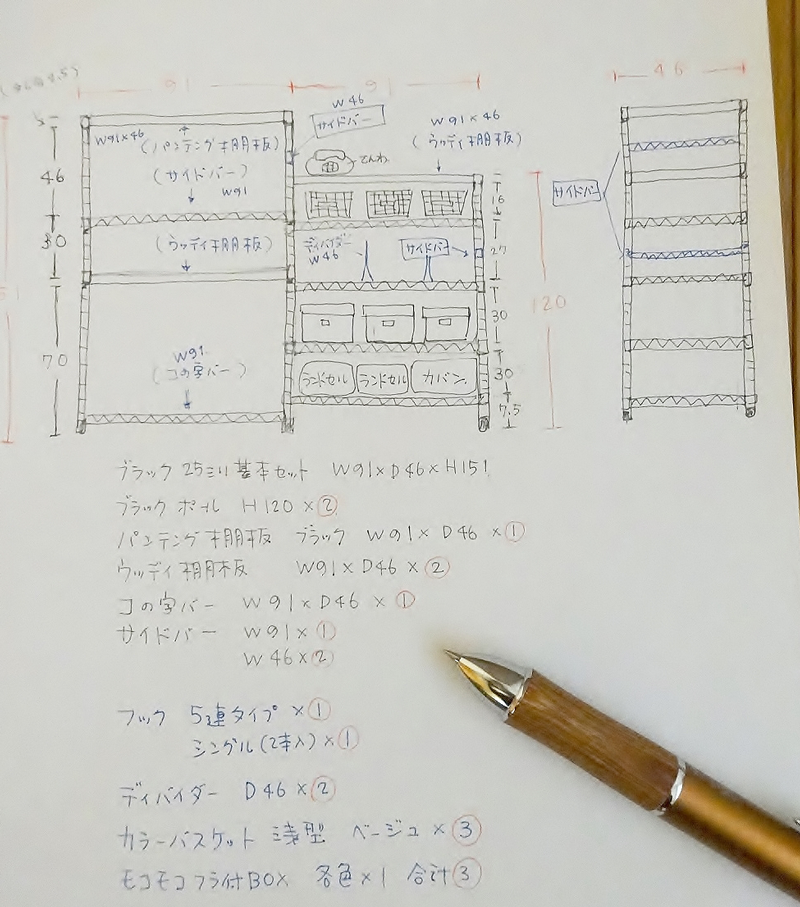 91
91
46
W46
サイドバー
W91×46
(ウッディ棚板)
W91×46
(パンチング棚板)
でんわ
(サイドバー)
W91
46
16
サイドバー
30
(ウッディ棚板)
ディバイダー
W46
サイドバー
27
120
30
70
W91
(コの字バー)
ランドセル
ランドセル
カバン
30
7.5
ブラック 25ミリ基本セット W91×D46×H151
ブラック ポール H120×②
パンチング棚板 ブラック W91×D46×①
ウッディ棚板 W91×D46×②
コの字バー W91×D46×①
サイドバー W91×①
W46×②
フック 5連タイプ×①
シングル(2本入)×①
ディバイダー D46×②
カラーバスケット 浅型 ベージュ×③
モコモコフタ付BOX 各色×1 合計③